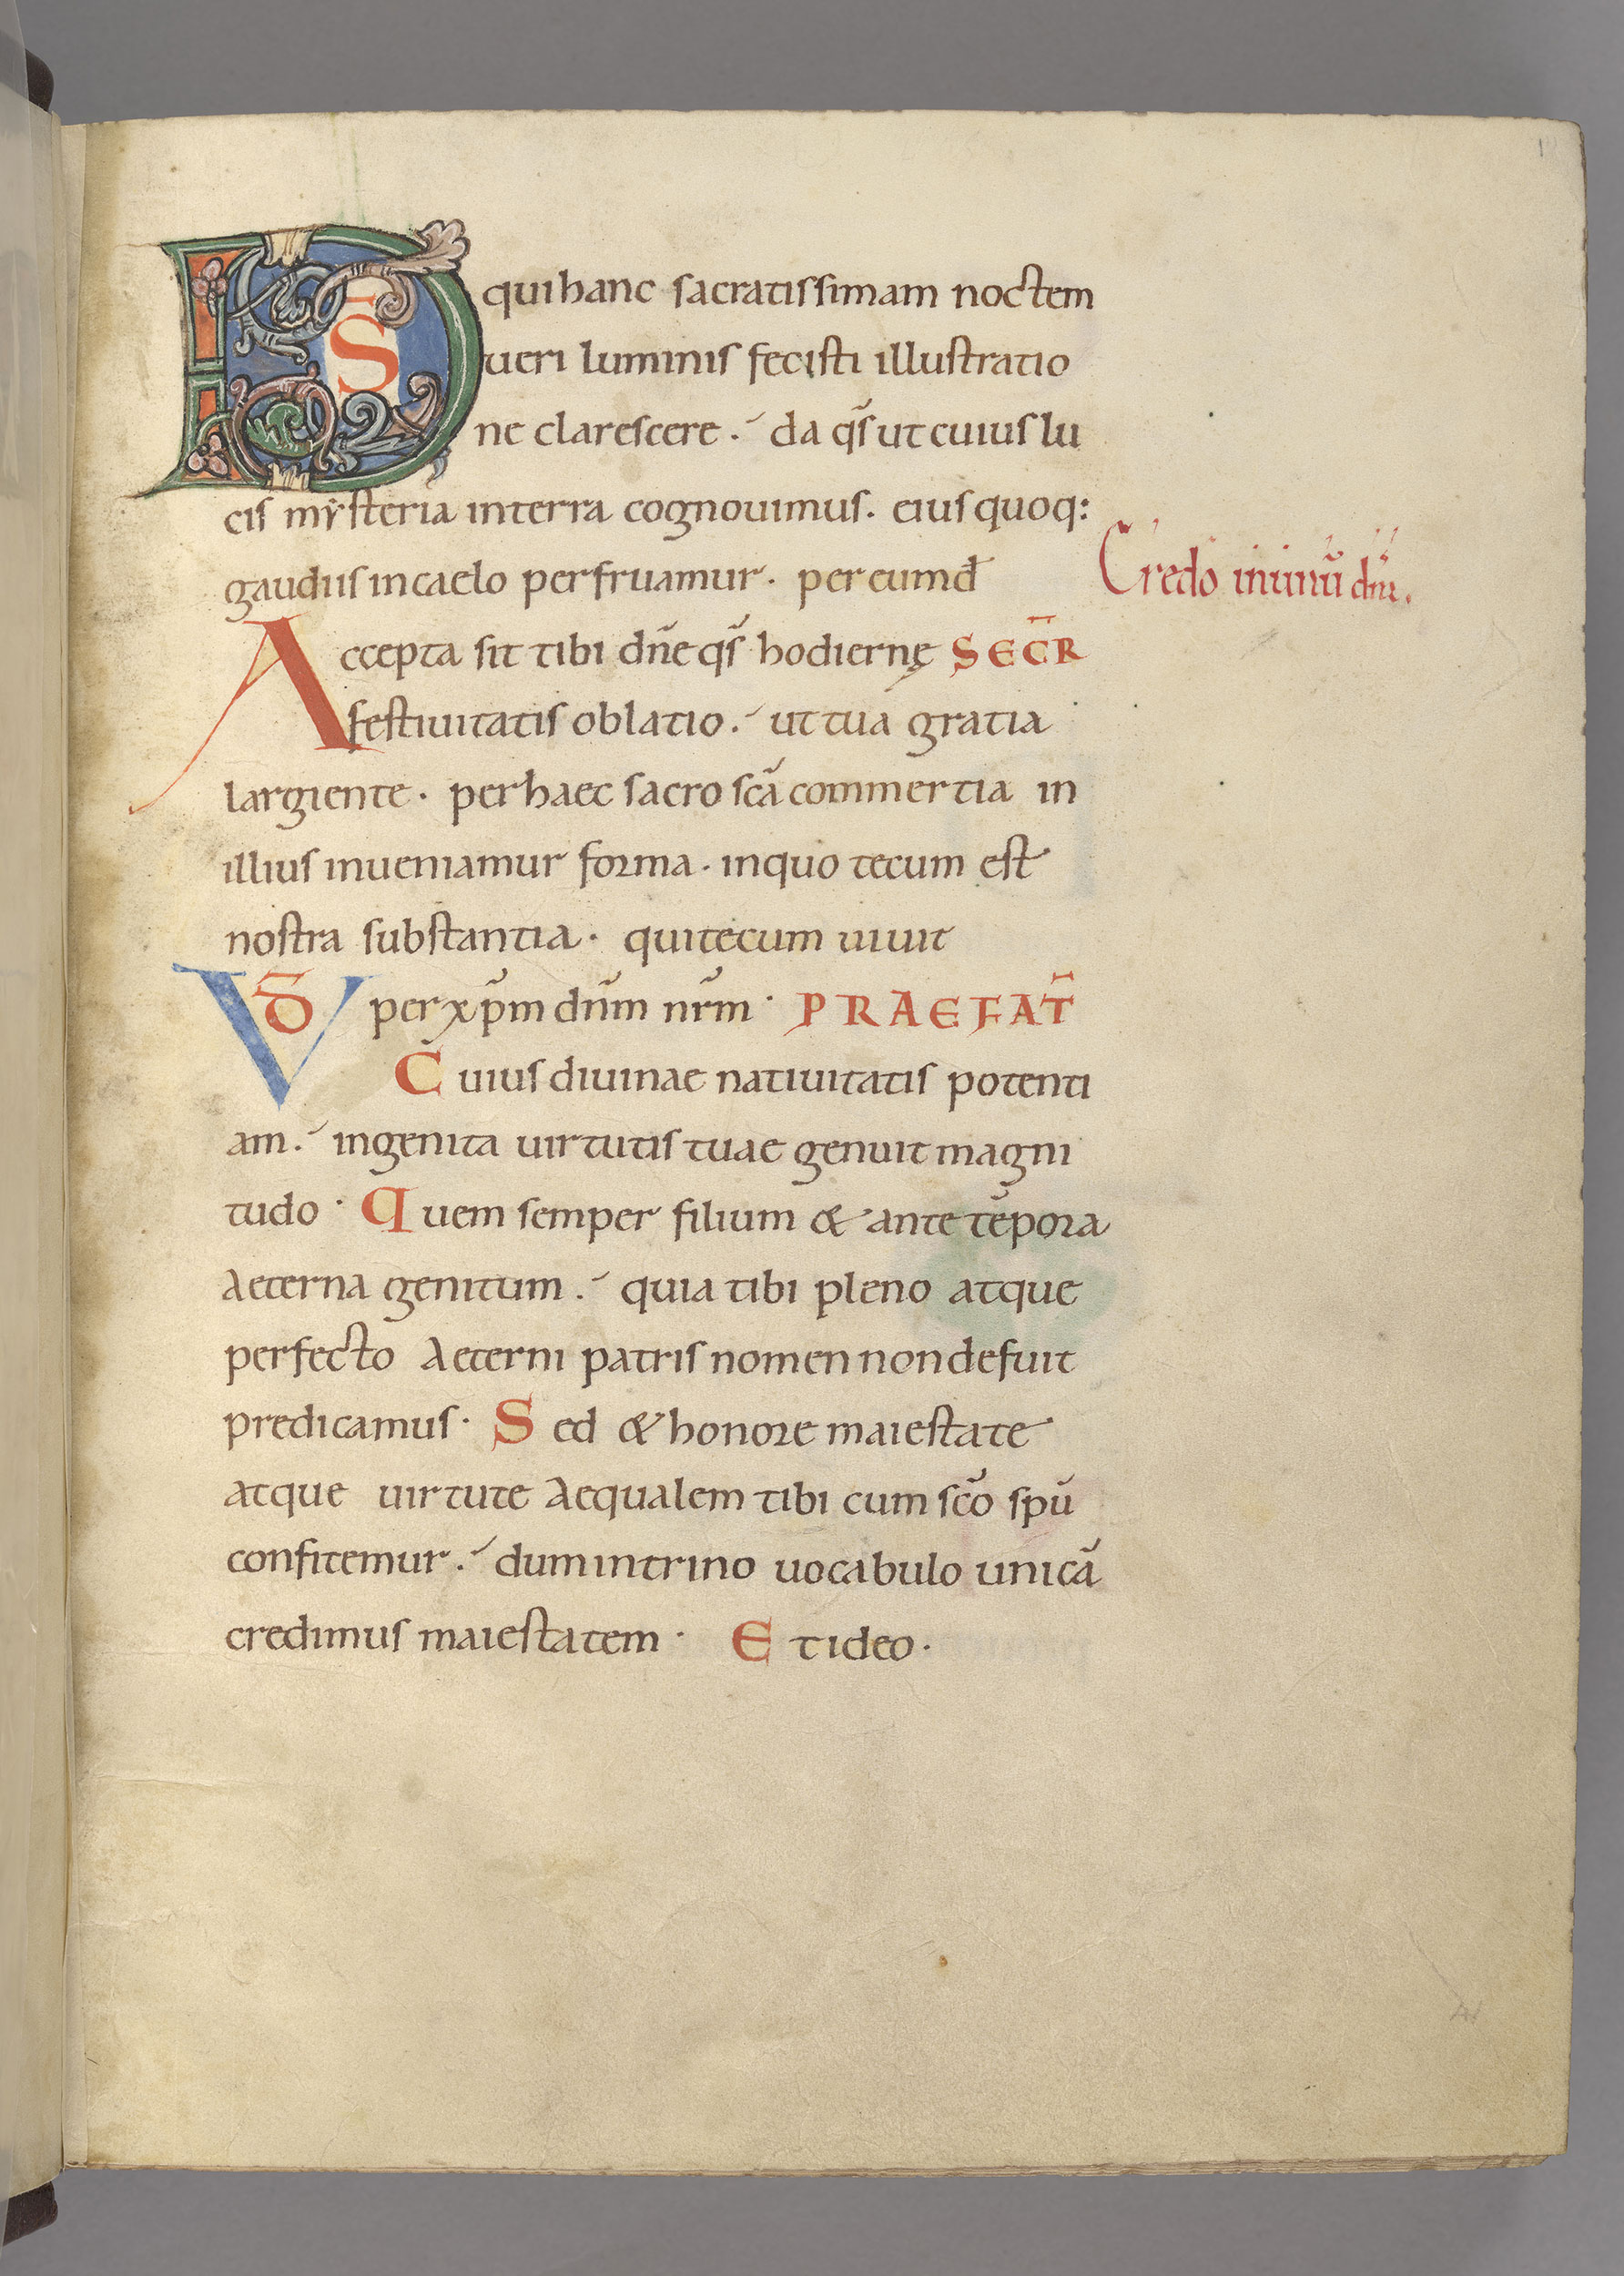 D̄S qui hanc sacratissimam noctem
ueri luminis fecisti illustratio
ne clarescere. da qs̄ ut cuius lu
cis mẏsteria in terra cognouimus. eius quoq:
gaudiis in caelo perfruamur. per eumd̄
Credo in unū dm̄.
Accepta sit tibi dn̄e qs̄ hodiernę SECR̄
festiuitatis oblatio. ut tua gratia
largiente. per haec sacro scā commertia in
illius inueniamur forma. in quo tecum est
nostra substantia. qui tecum uiuit
VD̄ per xp̄m dn̄m nr̄m. PRAEFAT̄
Cuius diuinae natiuitatis potenti
am. ingenita uirtutis tuae genuit magni
tudo. Quem semper filium & ante tēpora
aeterna genitum. quia tibi pleno atque
perfecto aeterni patris nomen non defuit
predicamus. Sed & honore maiestate
atque uirtute aequalem tibi cum scō spū
confitemur. dum in trino uocabulo unicā
credimus maiestatem. Et ideo.